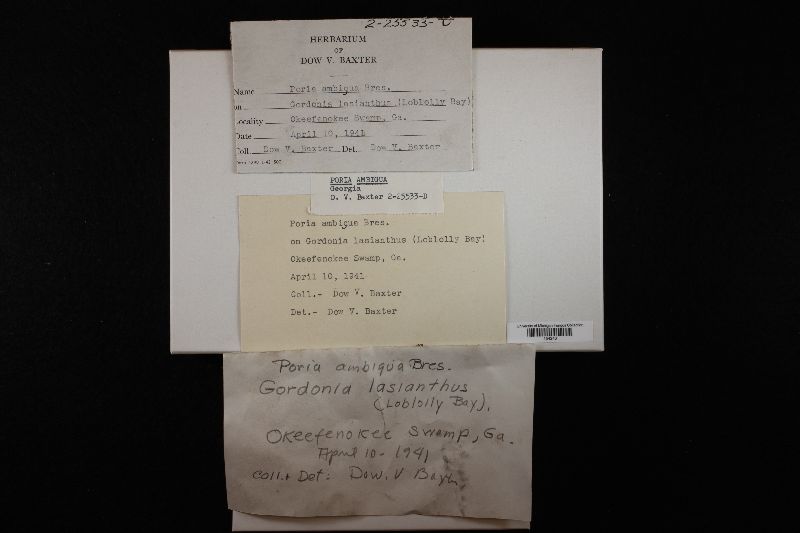 2-25533-D
HERBARIUM
OF
DOW V. BAXTER
Name Poria ambigua Bres.
on Gordonia lasianthus (Loblolly Bay)
Locality Okeefenokee Swamp, Ga.
Date April 10, 1941
Coll. Dow V. Baxter Det. Dow V. Baxter
PORIA AMBIGUA
Georgia
D. V. Baxter 2-25533-D
Poria ambigua Bres.
on Gordonia lasianthus (Loblolly Bay)
Okeefenokee Swamp, Ga.
April 10, 1941
Coll.- Dow V. Baxter
Det.- Dow V. Baxter
University of Michigan Fungus Collection
Poria ambigua Bres.
Gordonia lasianthus
(Loblolly Bay).
Okeefenokee Swamp, Ga.
April 10- 1941
Coll.+ Det: Dow. V